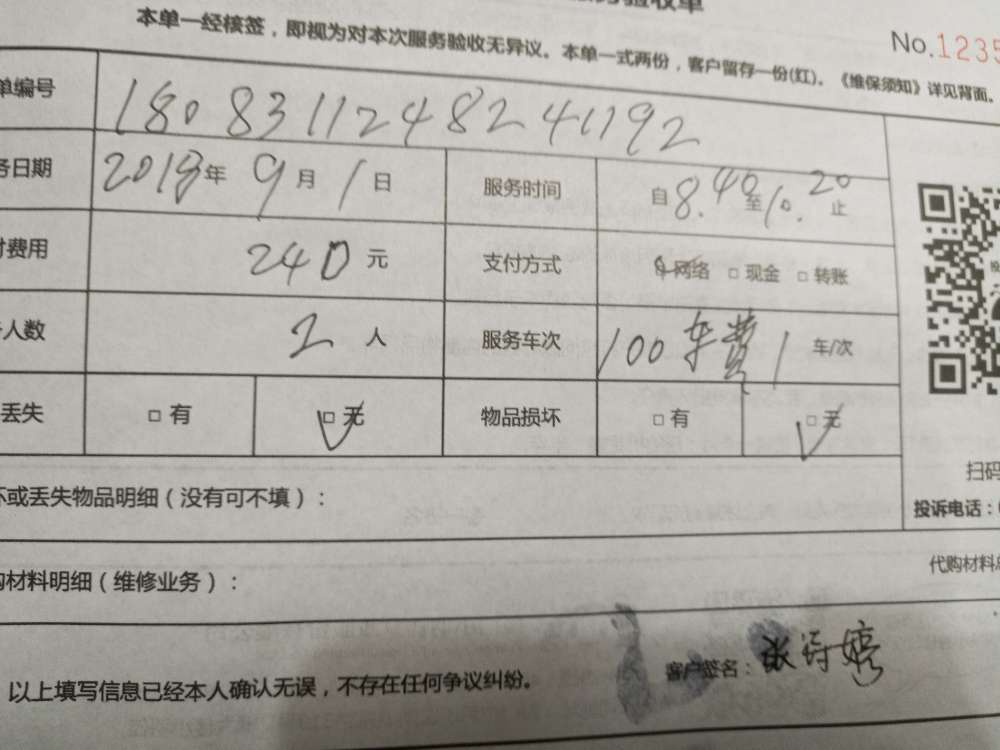 验收单
本单一经核签，即视为对本次服务验收无异议。本单一式两份，客户留存一份(红)。《维保须知》详见背面。
No.1235
单编号 180831124824192
务日期 2018年 9月 1日 服务时间 自8.40至10.20止
付费用 240元 支付方式 网络 □现金 □转账
人数 2人 服务车次 100车费1车/次
丢失 □有 □无 物品损坏 □有 □无
扫码
坏或丢失物品明细（没有可不填）：
投诉电话：
购材料明细（维修业务）： 代购材料总
以上填写信息已经本人确认无误，不存在任何争议纠纷。
客户签名：张诗婷